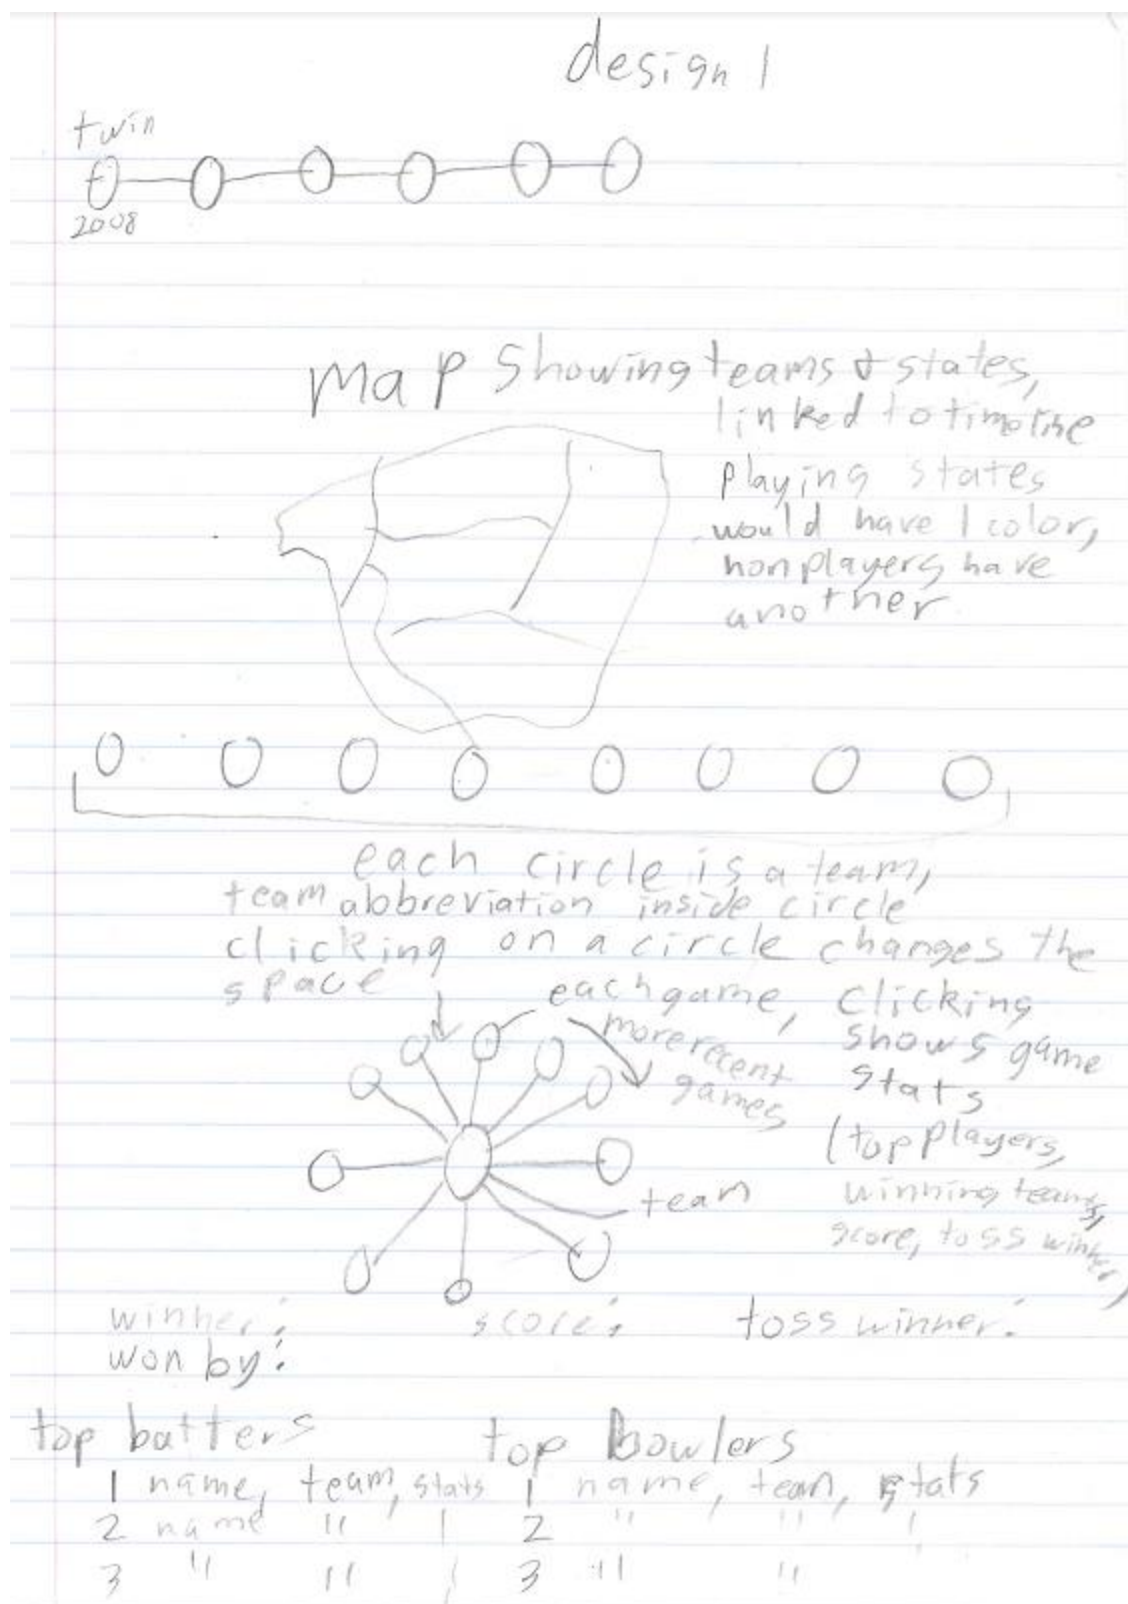 design 1
twin
2008
map showing teams & states,
linked to timeline
playing states
would have 1 color,
non players have
another
each circle is a team,
team abbreviation inside circle
clicking on a circle changes the
space
each game, clicking
more recent
games
shows game
stats
(top players,
team
winning teams,
score, toss winner,)
winner: score: toss winner:
won by:
top batters top bowlers
1 name, team, stats 1 name, team, stats
2 name " | 2 " " |
3 " " | 3 " "